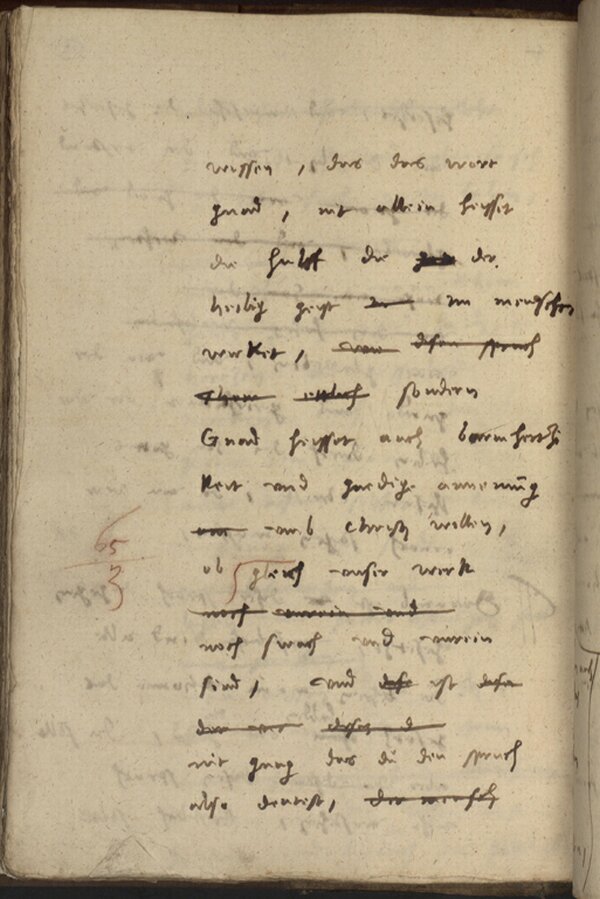 wissen, das das wort
gnad, nit allein heysset
die hulff die der
heilig geyst im menschen
wirket,
sondern
Gnad heysset auch barmhertzi
keit und gnedige annemung
umb Christj willen,
ob gleich unser werk
65
3
noch swach und unrein
sind, und ist
nit gnug das du den spruch
also deutest, der mensch